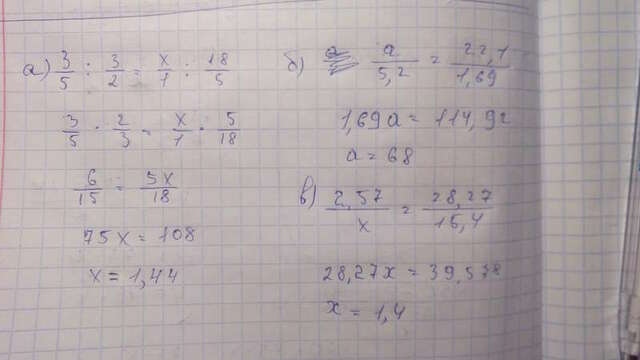 а) 3/5 : 3/2 = x/1 : 18/5
3/5 · 2/3 = x/1 · 5/18
6/15 = 5x/18
75x = 108
x = 1,44
б) a/5,2 = 22,1/1,69
1,69a = 114,92
a = 68
в) 2,57/x = 28,27/15,4
28,27x = 39,578
x = 1,4